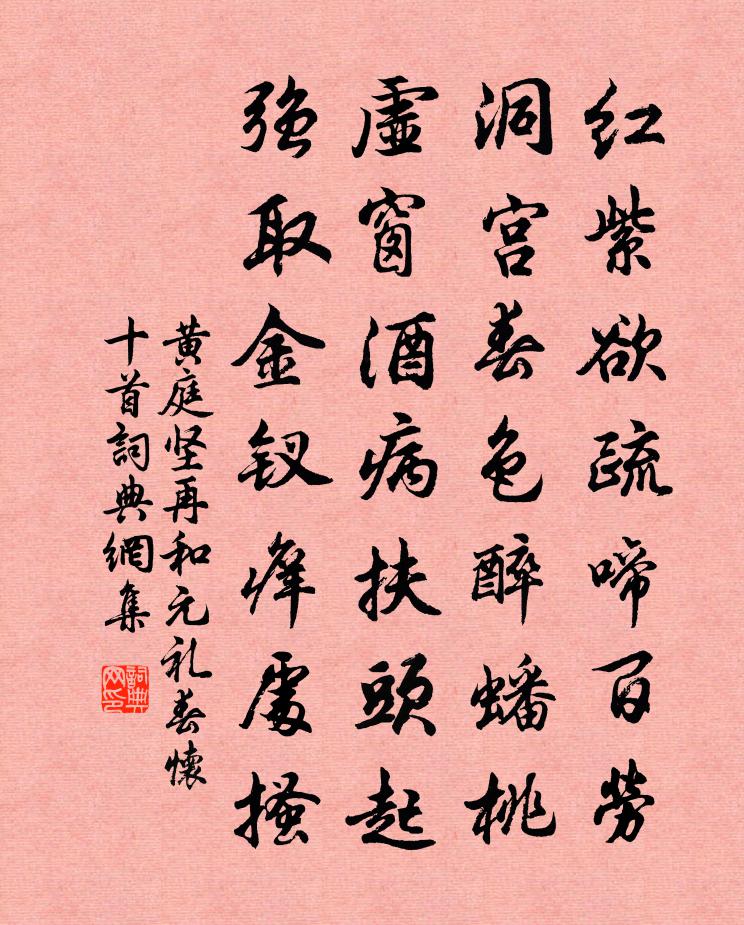 红紫欲疏啼百勞
洞宫春色醉蟠桃
虛窗酒病扶頭起
强取金钗痒處搔
黄庭坚再和元礼春懷
十首詞典網集
詞典
网印